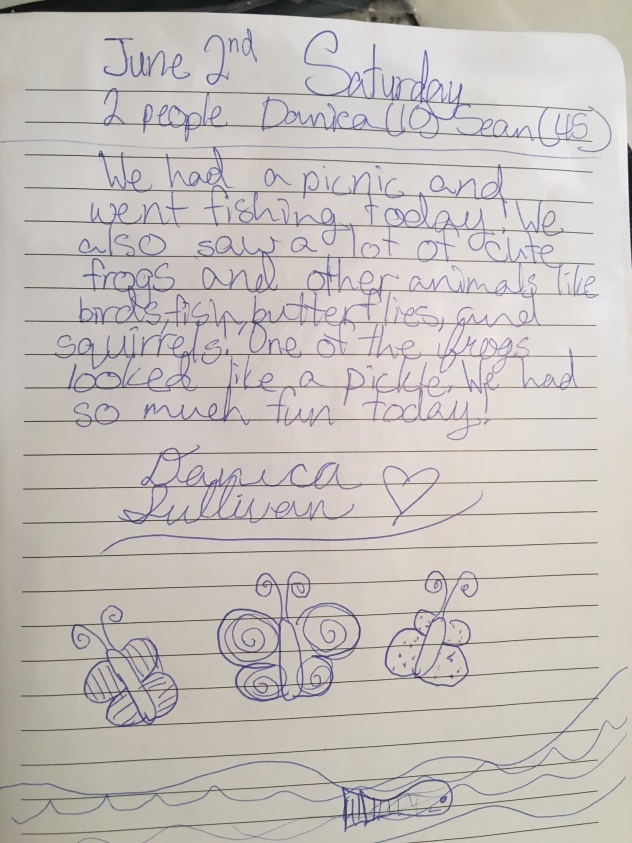 June 2nd Saturday
2 people Danica (10) Sean (45)
We had a picnic and
went fishing today! We
also saw a lot of cute
frogs and other animals like
birds, fish, butterflies, and
squirrels! One of the frogs
looked like a pickle. We had
so much fun today!
Danica
Sullivan